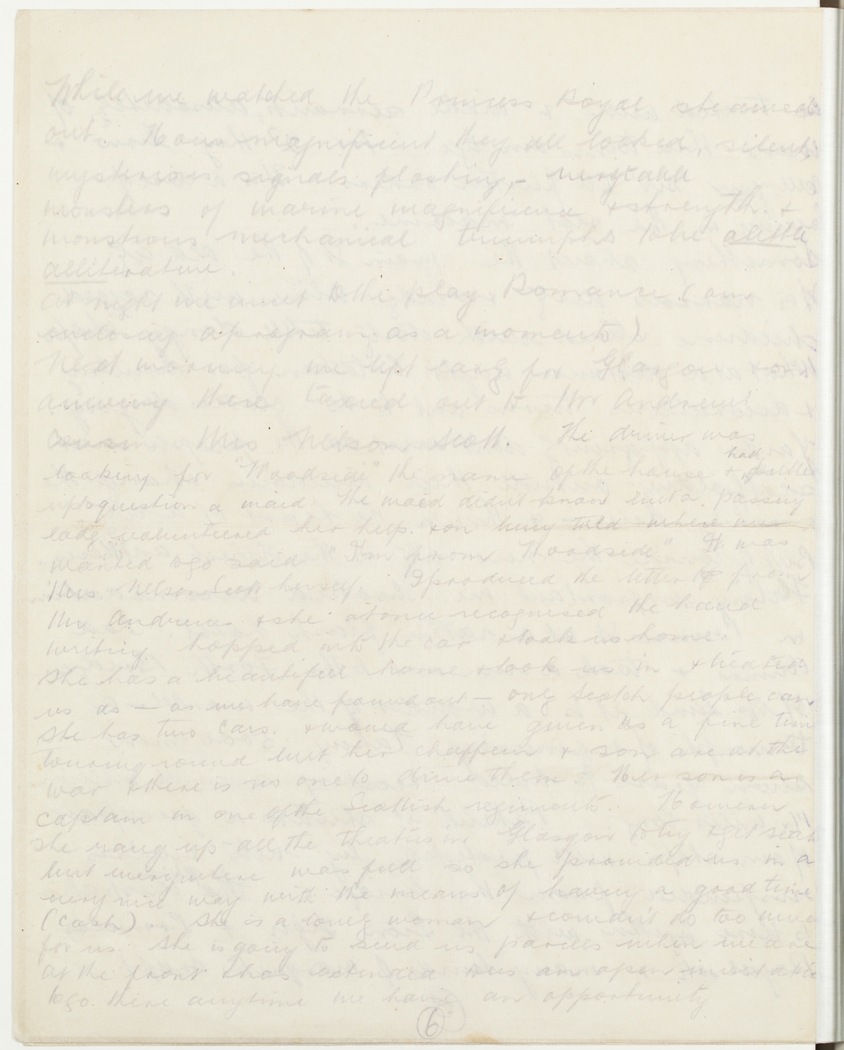 While we watched the Princess Royal steamed
out. How magnificient they all looked, silent,
mysterious signals flashing, -
monsters of marine magnificence & strength &
monstrous mechanical triumphs to be a little
alliterative.
At night we went to the play Romance (am
enclosing a program as a momento)
Next morning we left early for Glasgow & on
arriving there taxied out to Mr Andrews'
cousin Mrs Nelson Scott. The driver was
looking for "Woodside" the name of the house & had pulled
up to question a maid. The maid didn't know but a passing
lady volunteered her help. & on being told where we
wanted to go said "I'm from Woodside" It was
Mrs Nelson Scott herself. I produced the letter from
Mr Andrews & she at once recognised the hand
writing hopped into the car & took us home.
She has a beautiful home & took us in & treated
us as — as we have found out — only Scotch people can
She has two cars. & would have given us a fine time
touring round but her chaffeur & son are at the
war & there is no one to drive them. Her son is a
captain in one of the Scottish regiments. However
she rang up all the theatres in Glasgow to try & get seats
but everywhere was full so she provided us in a
very nice way with the means of having a good time
(cash). She is a lonely woman & couldn't do too much
for us. She is going to send us parcels when we are
at the front & has extended to us an open invitation
to go there anytime we have an opportunity.
6